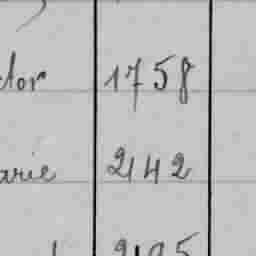 ctor 1758
arie 2142